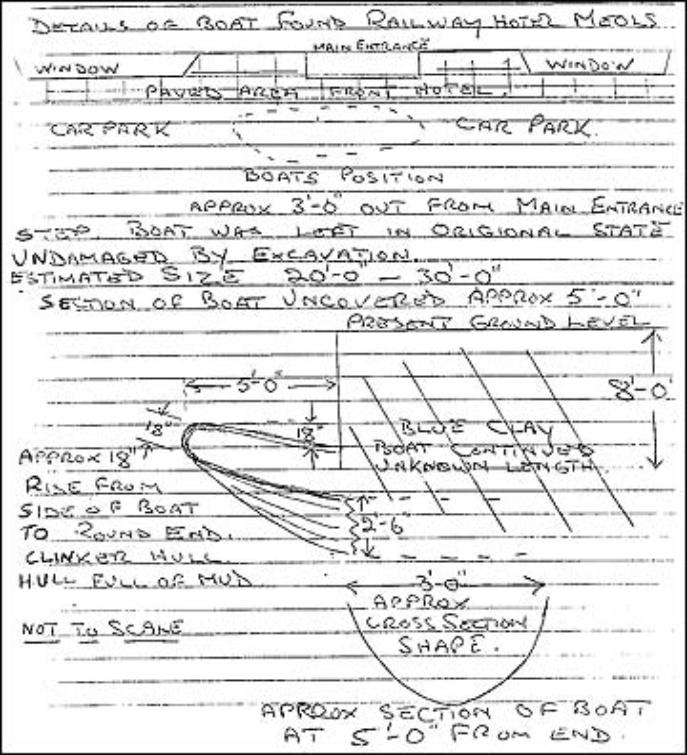 DETAILS OF BOAT FOUND RAILWAY HOTEL MEOLS
MAIN ENTRANCE
WINDOW WINDOW
PAVED AREA FRONT HOTEL.
CAR PARK CAR PARK.
BOATS POSITION
APPROX 3'-0" OUT FROM MAIN ENTRANCE
STEP. BOAT WAS LEFT IN ORIGIONAL STATE
UNDAMAGED BY EXCAVATION.
ESTIMATED SIZE 20'-0" - 30'-0"
SECTION OF BOAT UNCOVERED APPROX 5'-0"
PRESENT GROUND LEVEL
5'-0"
8'-0
18"
18"
BLUE CLAY
BOAT CONTINUED
UNKNOWN LENGTH.
APPROX 18"
RISE FROM
SIDE OF BOAT
TO ROUND END.
CLINKER HULL
HULL FULL OF MUD
2'-6"
3'-0"
APPROX
CROSS SECTION
SHAPE.
NOT TO SCALE
APPROX SECTION OF BOAT
AT 5'-0" FROM END.